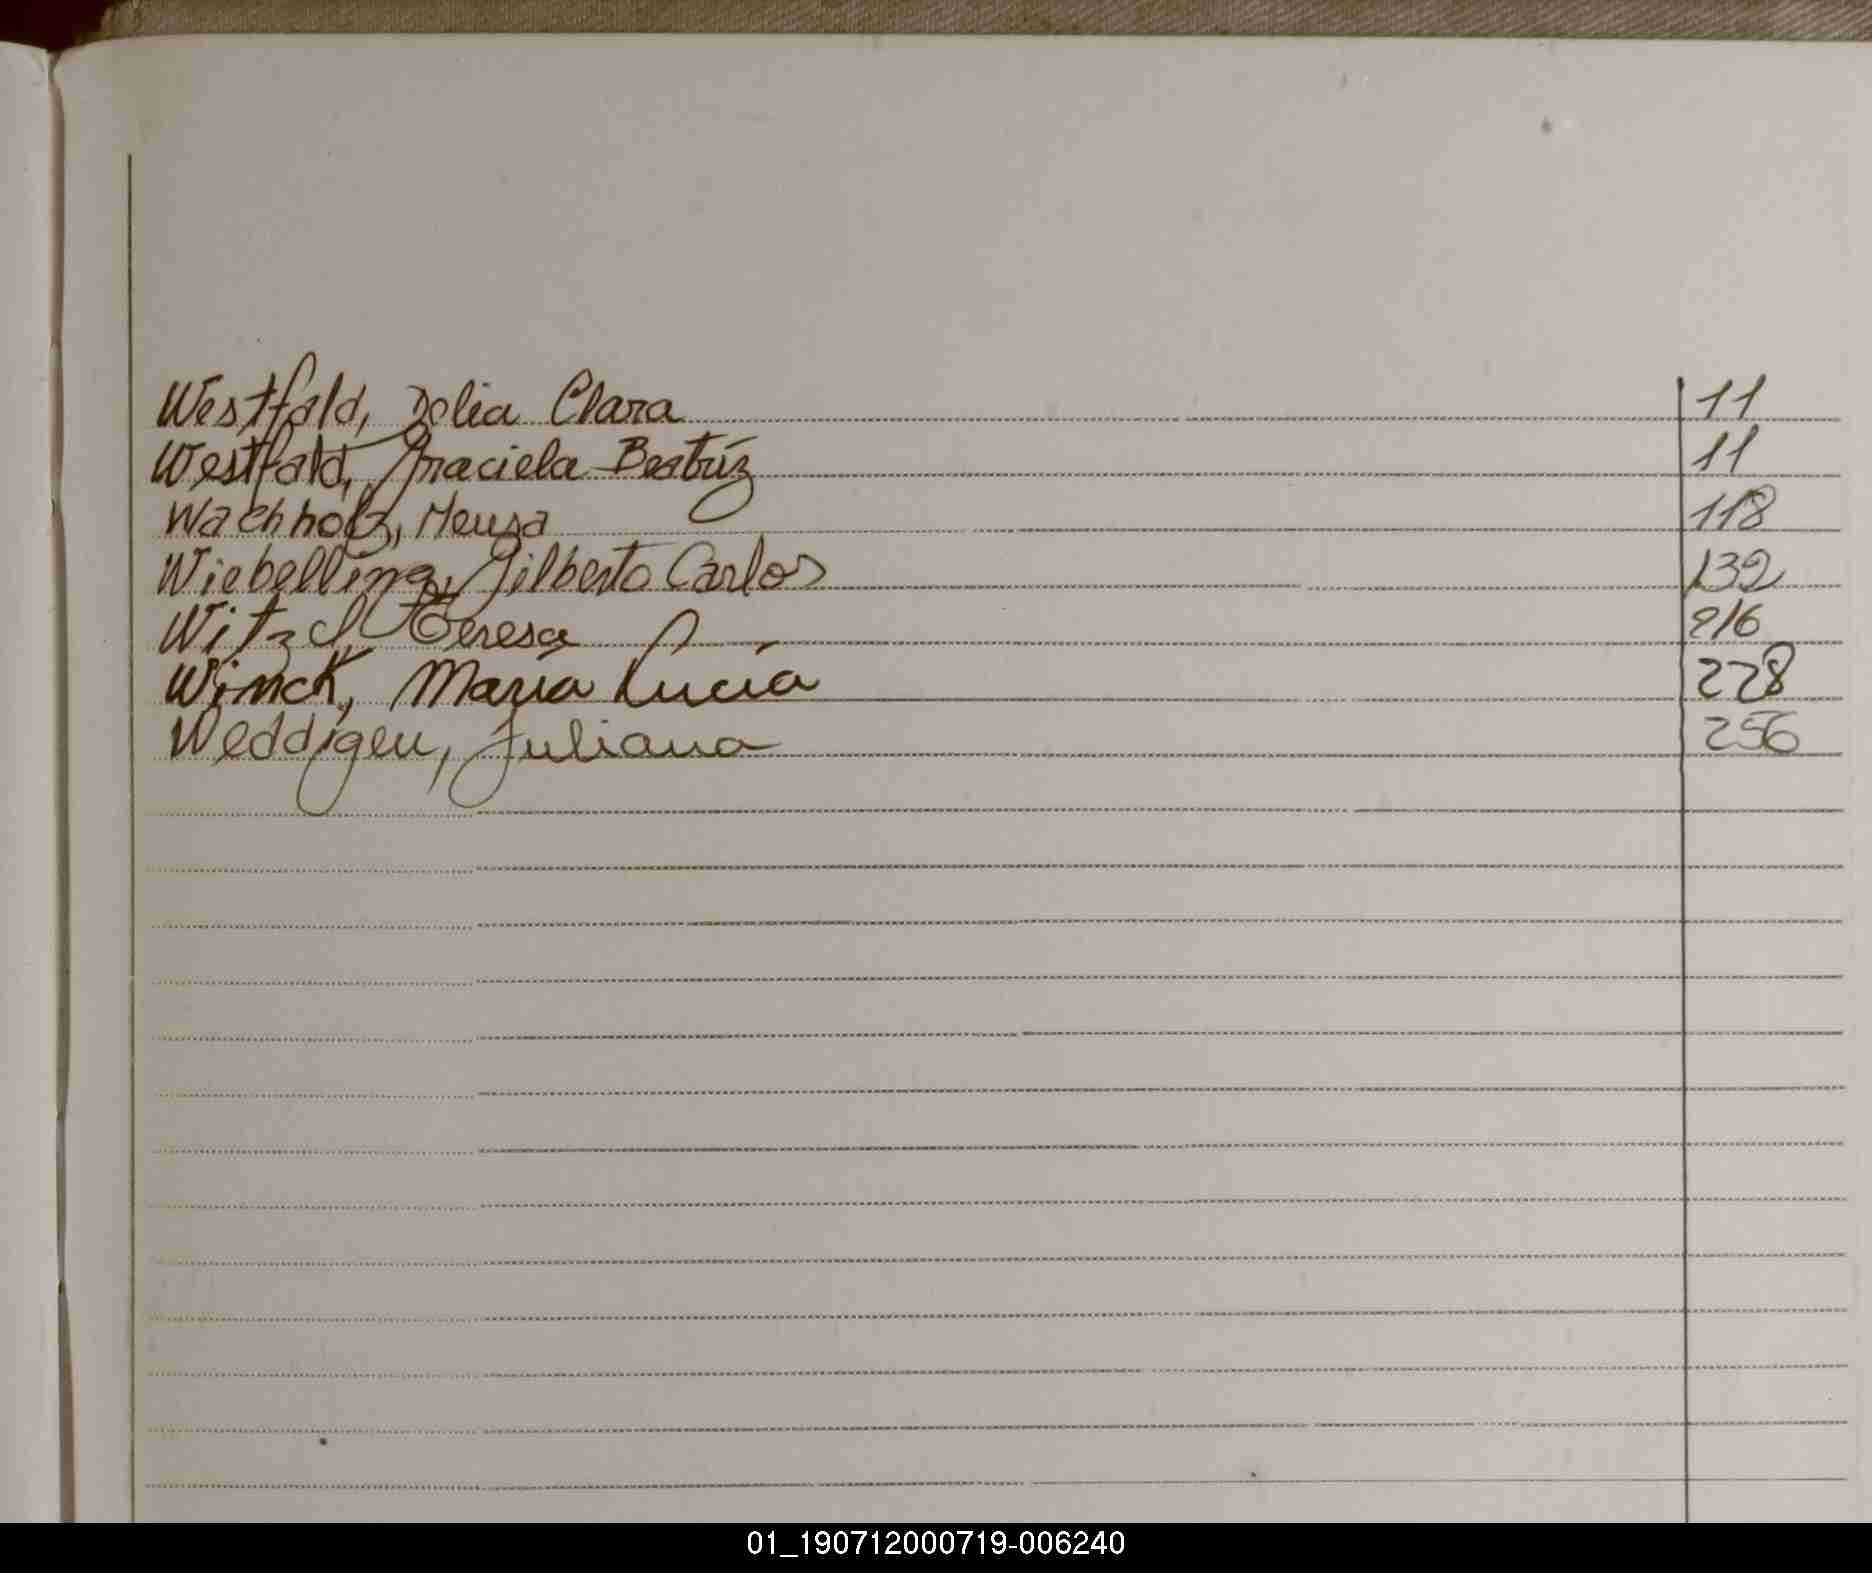 Westfald, Delia Clara 11
Westfald, Graciela Beatríz 11
Wachholz, Neusa 118
Wiebelling, Gilberto Carlos 132
Witzel, Teresa 216
Winck, María Lucía 228
Weddigen, Juliana 256
01_190712000719-006240